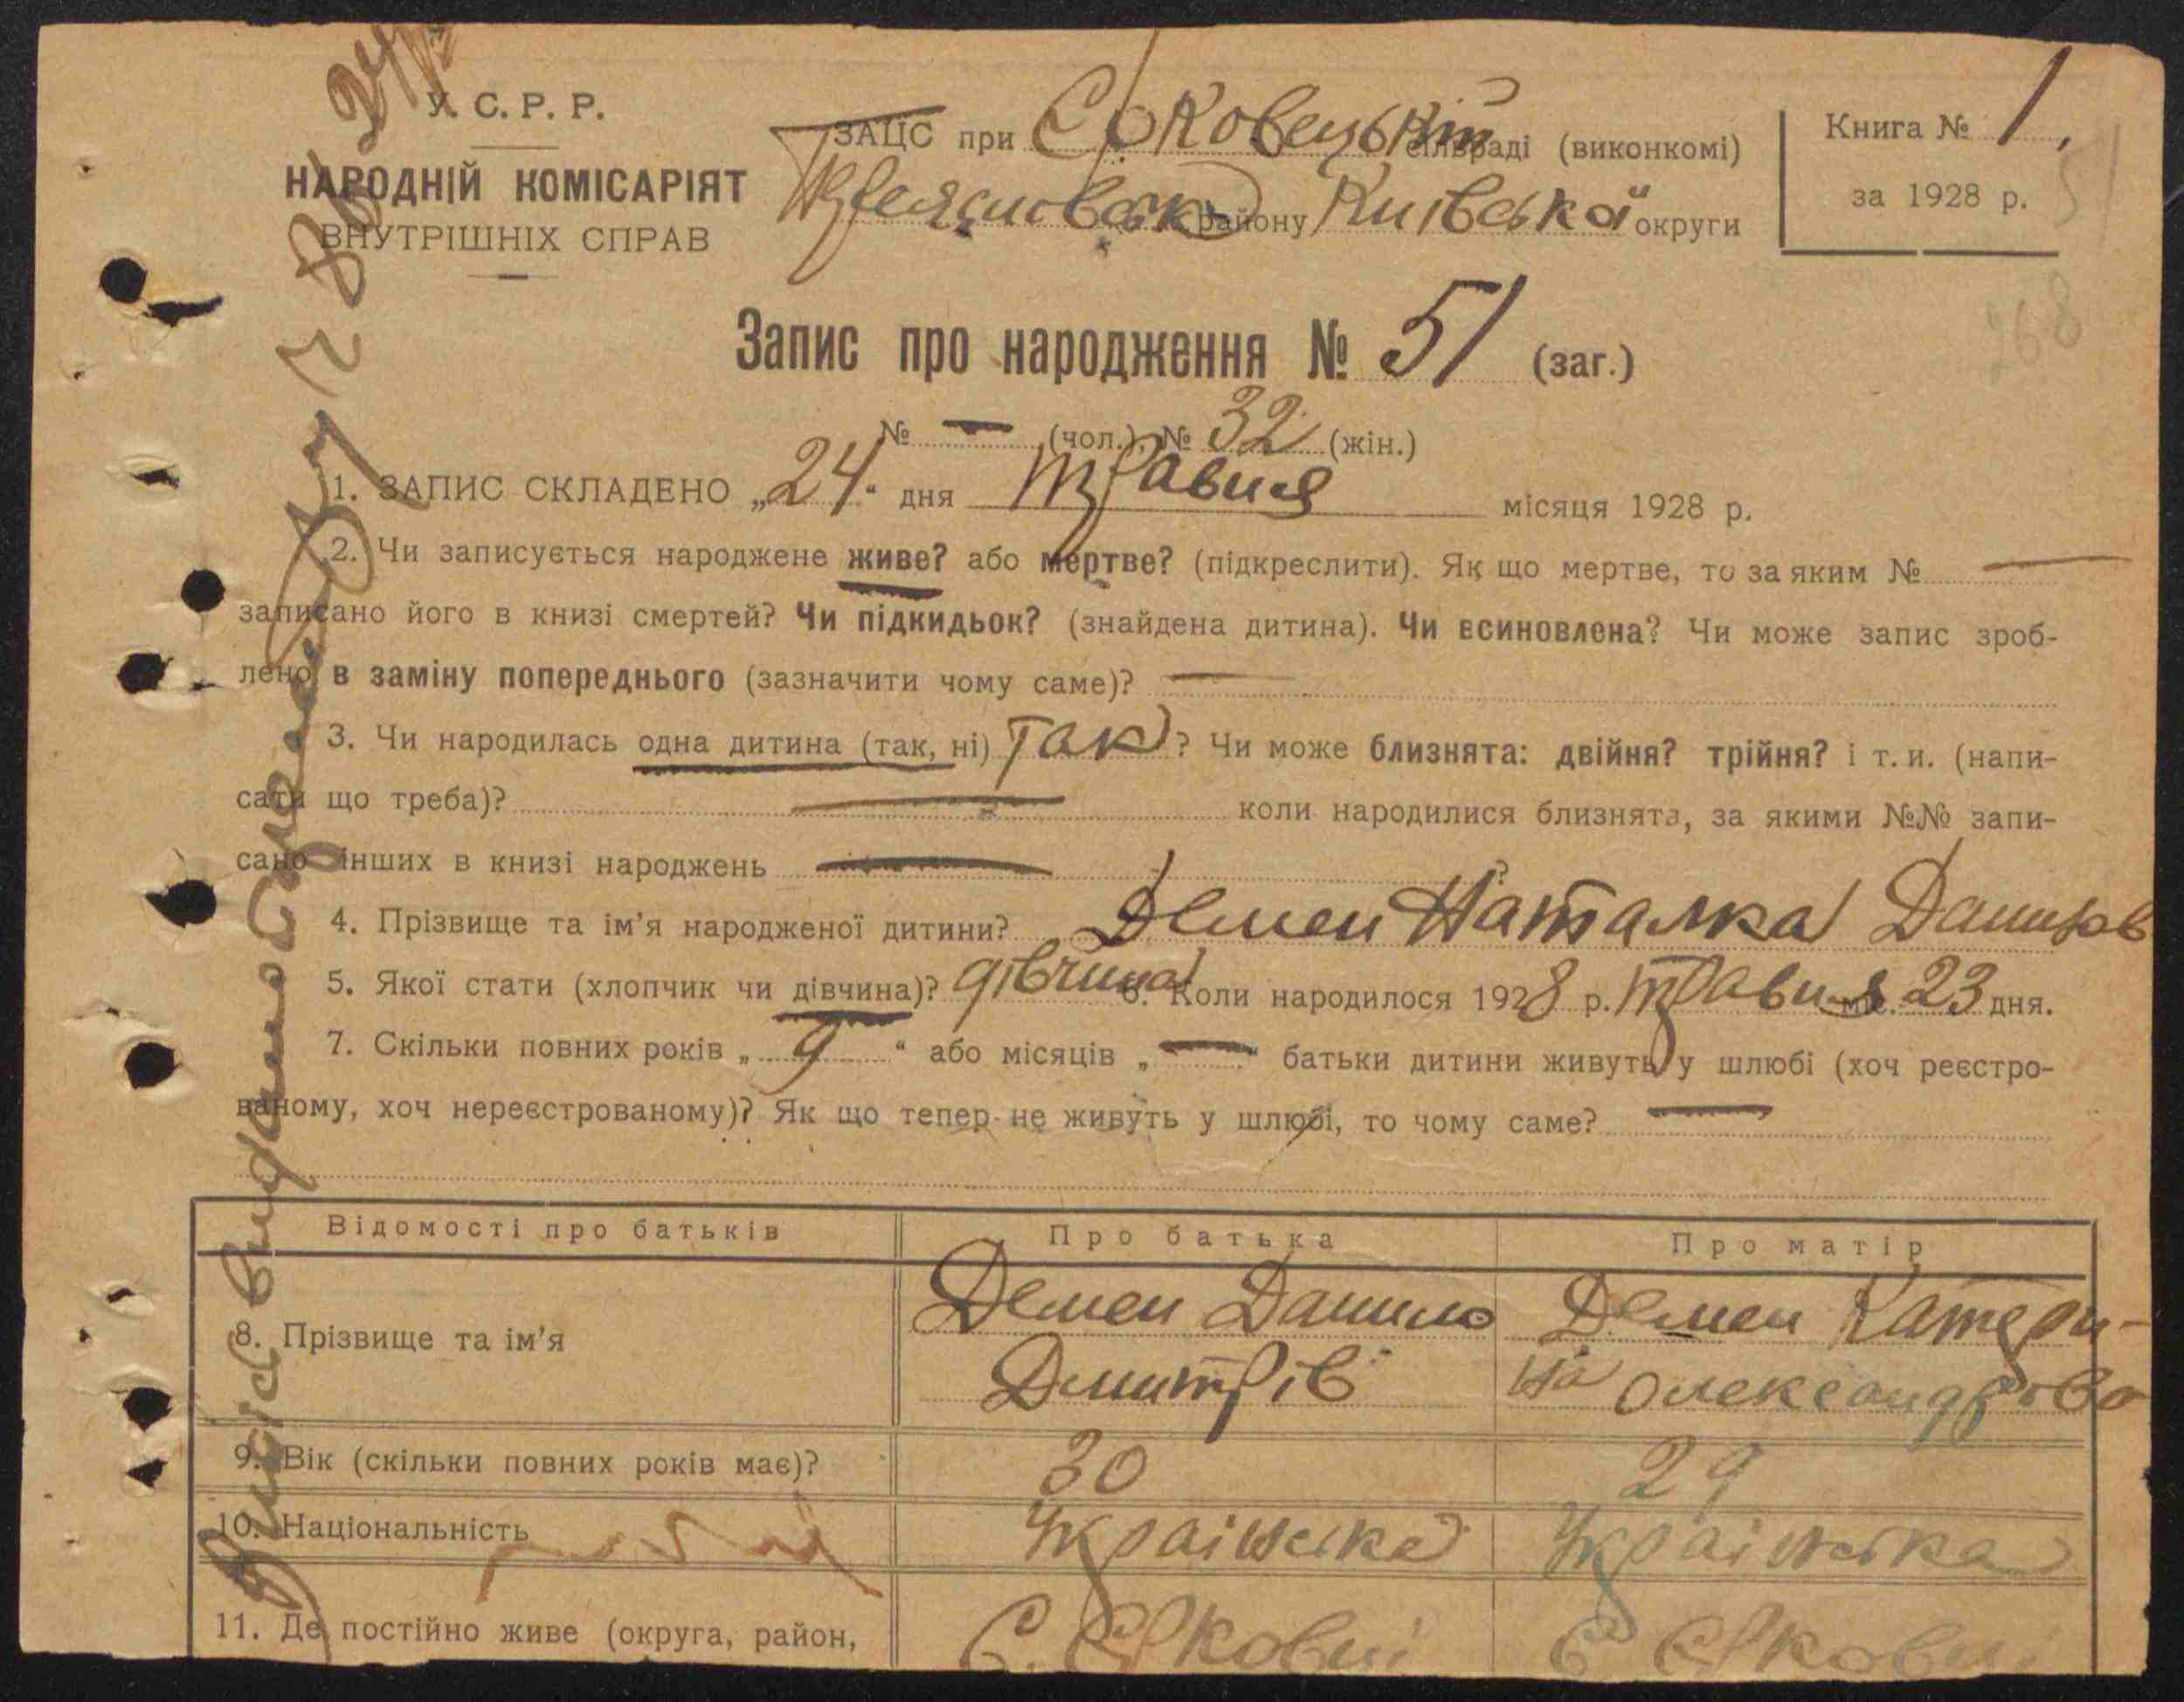 У. С. Р. Р.
НАРОДНІЙ КОМІСАРІЯТ
ВНУТРІШНІХ СПРАВ
ЗАЦС при сільраді (виконкомі)
району Київської округи
Книга № 1.
за 1928 р.
Запис про народження № 51 (заг.)
№ — (чол.) № 32 (жін.)
1. ЗАПИС СКЛАДЕНО „24“ дня травня місяця 1928 р.
2. Чи записується народжене живе? або мертве? (підкреслити). Як що мертве, то за яким № —
записано його в книзі смертей? Чи підкидьок? (знайдена дитина). Чи всиновлена? Чи може запис зроб-
лено в заміну попереднього (зазначити чому саме)? —
3. Чи народилась одна дитина (так, ні) так? Чи може близнята: двійня? трійня? і т. и. (напи-
сати що треба)? — коли народилися близнята, за якими №№ запи-
сано інших в книзі народжень — ?
4. Прізвище та ім'я народженої дитини? Демен Наталка
5. Якої стати (хлопчик чи дівчина)? дівчина 6. Коли народилося 1928 р. травня міс. 23 дня.
7. Скільки повних років „9“ або місяців „—“ батьки дитини живуть у шлюбі (хоч реєстро-
ваному, хоч нереєстрованому)? Як що тепер не живуть у шлюбі, то чому саме? —
Відомості про батьків Про батька Про матір
8. Прізвище та ім'я Демен Данило Демен Катери-
Дмитрів на Олександрова
9. Вік (скільки повних років має)? 30 29
10. Національність Українська Українська
11. Де постійно живе (округа, район,